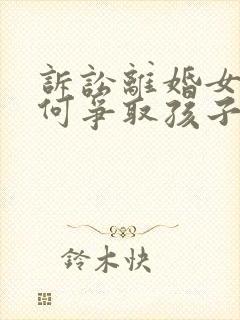 訴訟離婚女
何爭取孩子
鈴木快